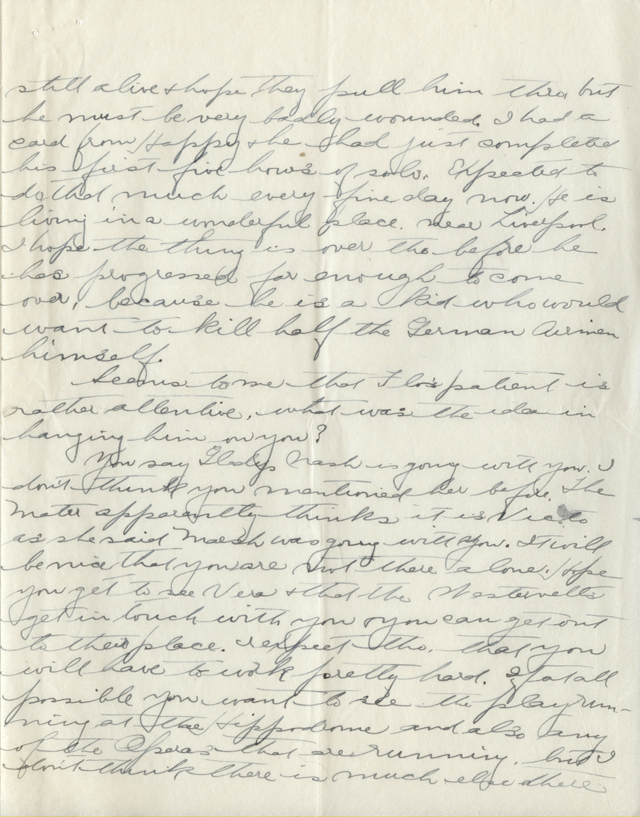 still alive & hope they pull him thru but
he must be very badly wounded. I had a
card from Happy & he had just completed
his first five hours of solo. Expected to
do that much every fine day now. He is
living in a wonderful place. near Liverpool.
I hope the thing is over tho before he
has progressed far enough to come
over, because he is a kid who would
want to kill half the German Airmen
himself.
Seems to me that Flo's patient is
rather attentive, what was the idea in
hanging him on you?
You say Gladys Nash is going with you. I
don't think you mentioned her before. The
Mater apparently thinks it is
as she said Nash was going with you. It will
be nice that you are not there alone. Hope
you get to see Vera & that the Westervelts
get in touch with you or you can get out
to their place. I expect tho. that you
will have to work pretty hard. If at all
possible you want to see the play run-
ning at the Hippodrome and also any
of the Operas that are running. but I
don't think there is much else there